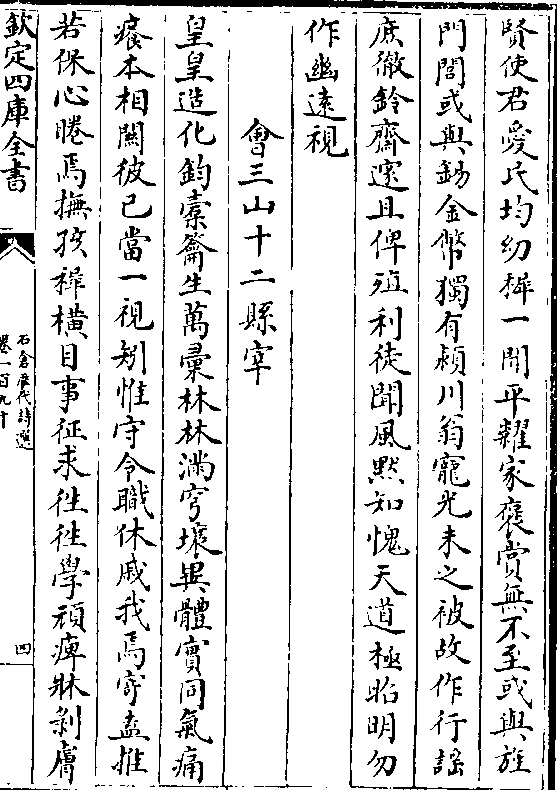 賢使君愛民均幼穉一聞平糶家褒賞無不至或與旌
門閭或與錫金幣獨有潁川翁寵光未之被故作行謡
庶徹鈴齋邃且俾殖利徒聞風黙知愧天道極昭明勿
作幽逺視
會三山十二縣宰
皇皇造化鈞橐籥生萬彙林林滿穹壤異體實同氣痛
癢本相闗彼已當一視矧惟守令職休戚我焉寄盍推
若保心睠焉撫孩穉横目事征求徃徃學頑痺牀剥膚
欽定四庫全書
石倉歴代詩選
卷一百九十
四